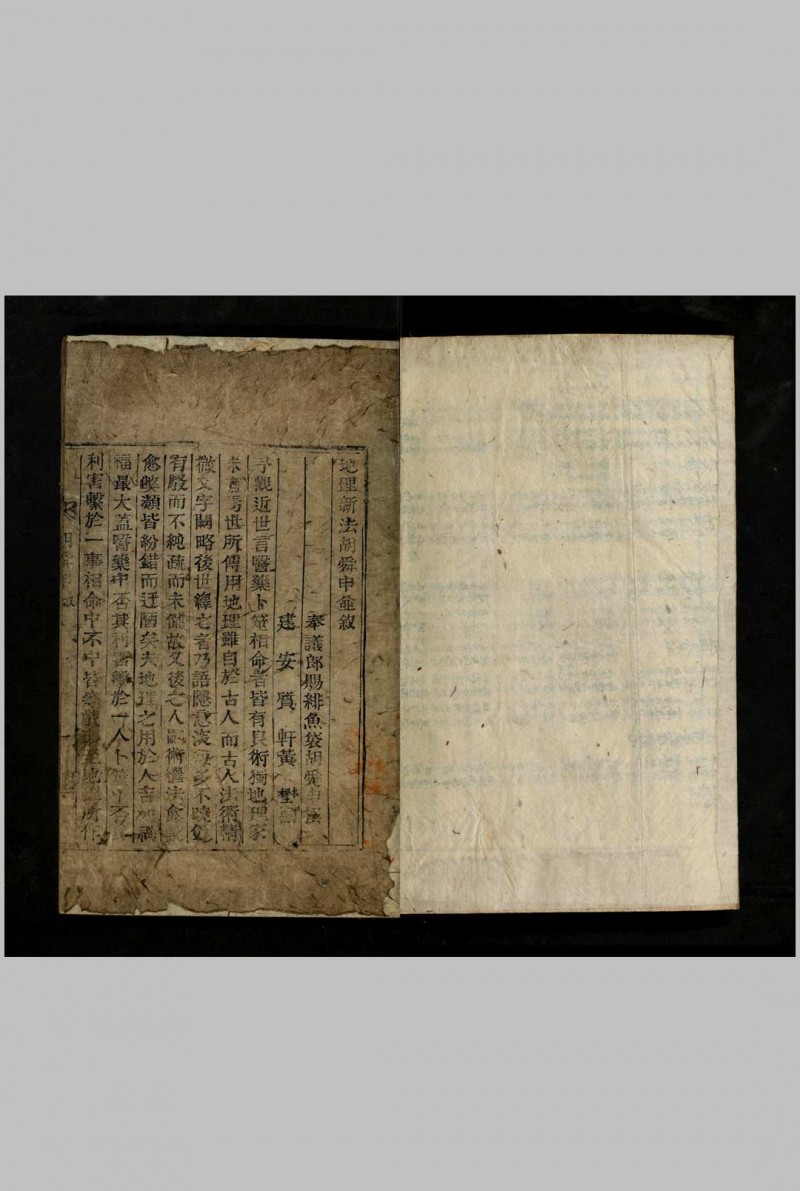 地理新法胡舜申並敘
奉議郎賜緋魚袋胡舜申撰
建安質軒黃
予觀近世言醫藥卜筮相命者皆有良術獨地理家
未 世所傳用地理雖自於古人而古人法術精
微文字闊略後世繹之者乃語隱意 多不曉
有駁而不純疏而未備故又後之人 術 法愈
愈繁類皆紛錯而迂陋矣夫地理之用於人吉凶禍
福最大蓋醫藥中否其利害繫於一人卜筮中否
利害繫於一事相命中不中皆 地 所